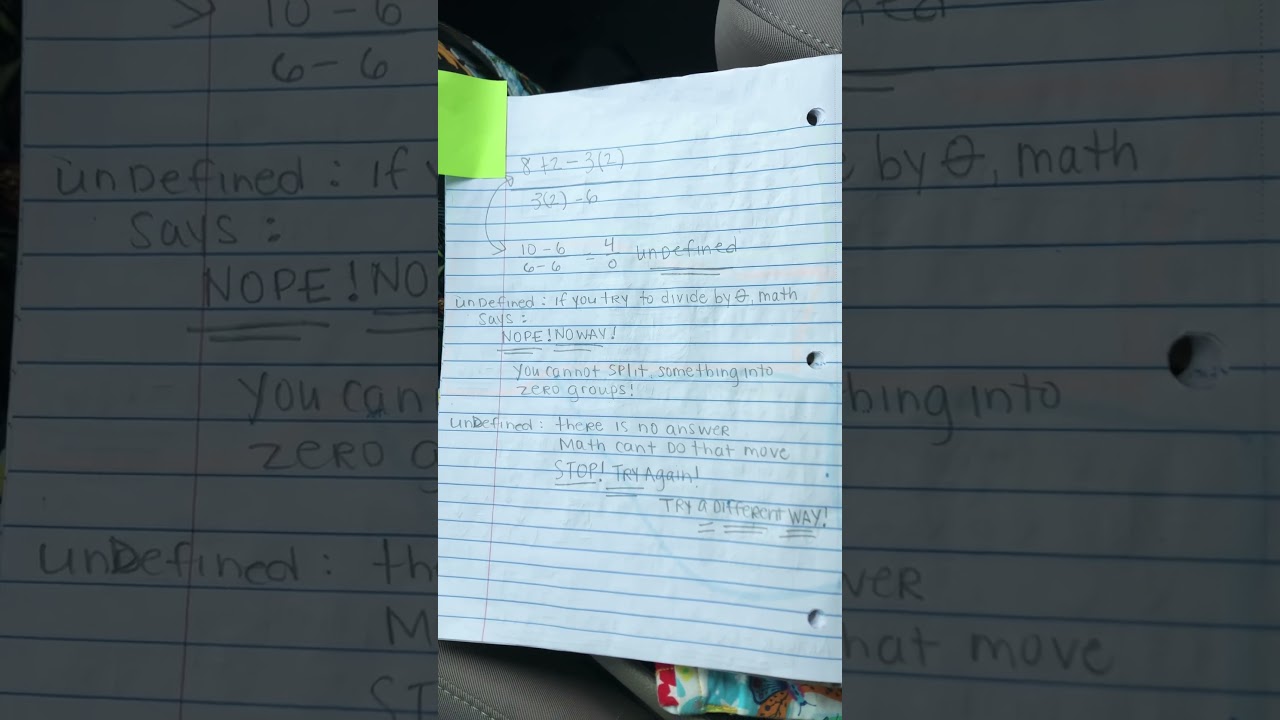 8 + 2 - 3(2)
3(2) - 6
10 - 6
6 - 6
= 4
0
undefined
unDefined: if you try to divide by 0, math
says:
NOPE! NO WAY!
You cannot split something into
zero groups!
unDefined: there is no answer
Math cant DO that move
STOP! TRY Again!
TRY a Different WAY!